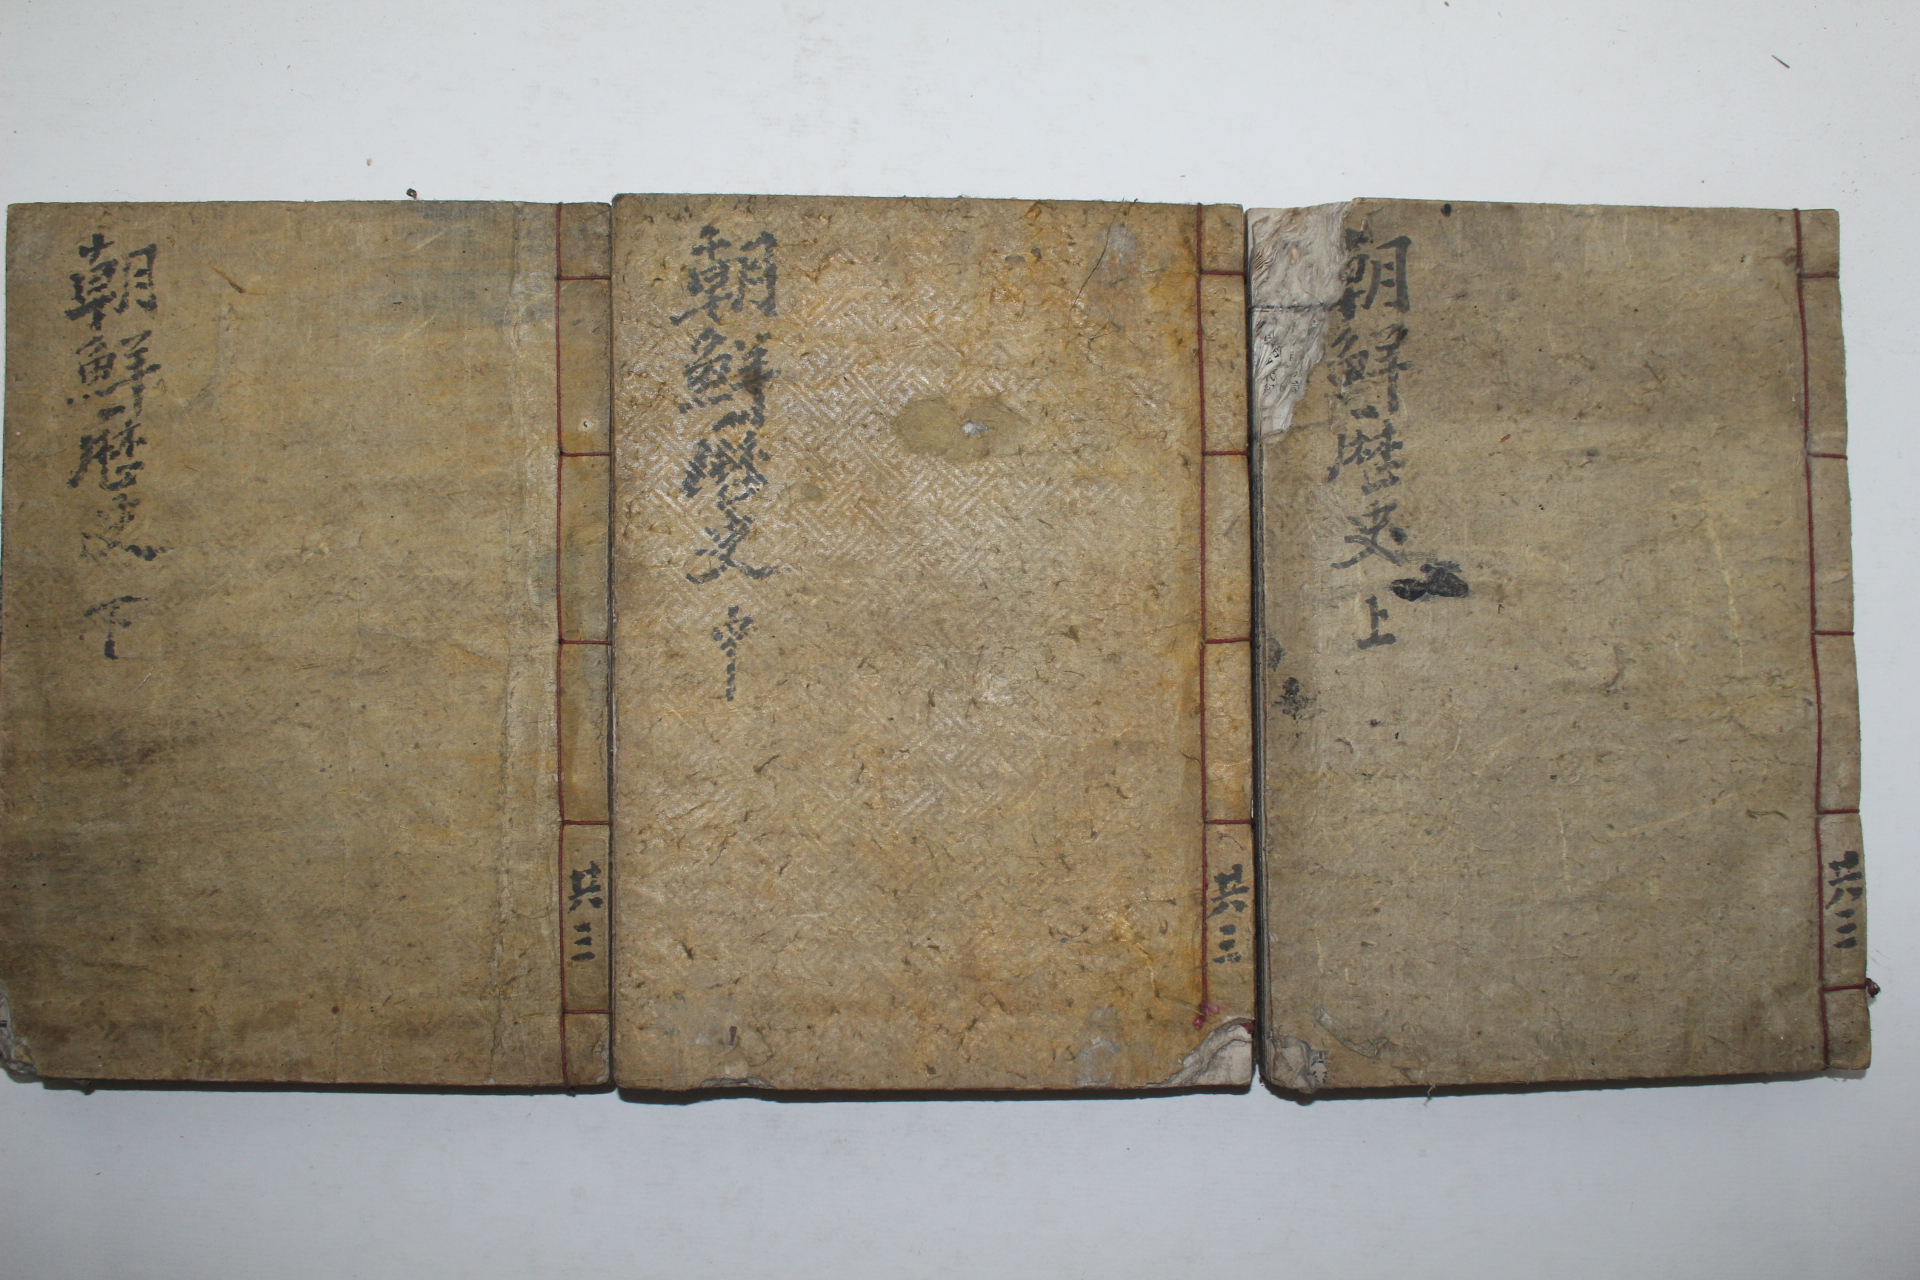 朝鮮歷史 上
共三
朝鮮歷史 中
共三
朝鮮歷史 下
共三